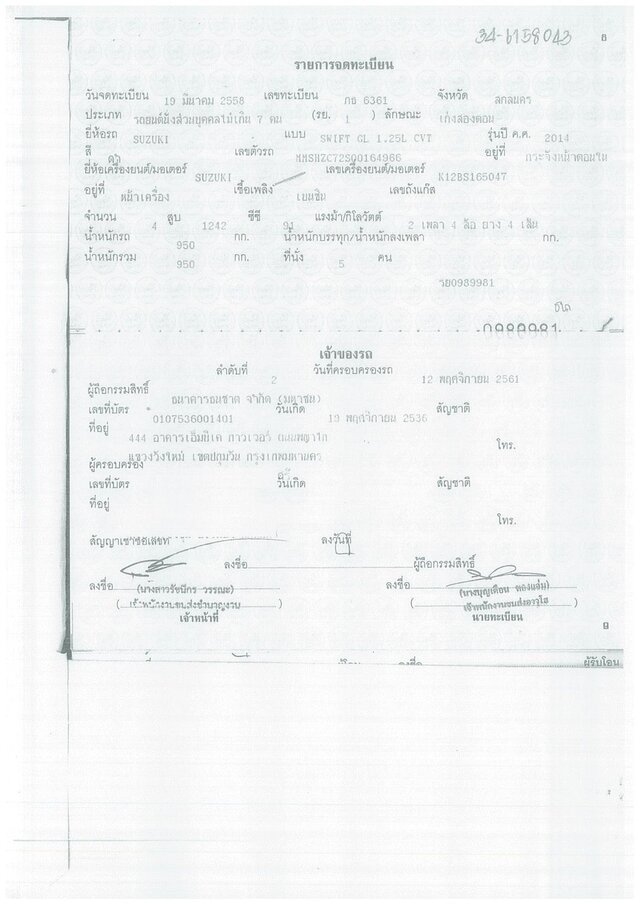 34-6158043 8
รายการจดทะเบียน
วันจดทะเบียน 19 มีนาคม 2558 เลขทะเบียน กธ 6361 จังหวัด สกลนคร
ประเภท รถยนต์นั่งส่วนบุคคลไม่เกิน 7 คน (รย. 1 ) ลักษณะ เก๋งสองตอน
ยี่ห้อรถ SUZUKI แบบ SWIFT GL 1.25L CVT รุ่นปี ค.ศ. 2014
สี ดำ เลขตัวรถ MMSHZC72S00164966 อยู่ที่ กระจังหน้าตอนใน
ยี่ห้อเครื่องยนต์/มอเตอร์ SUZUKI เลขเครื่องยนต์/มอเตอร์ K12BS165047
อยู่ที่ หน้าเครื่อง เชื้อเพลิง เบนซิน เลขถังแก๊ส
จำนวน 4 สูบ 1242 ซีซี 91 แรงม้า/กิโลวัตต์ 2 เพลา 4 ล้อ ยาง 4 เส้น
น้ำหนักรถ 950 กก. น้ำหนักบรรทุก/น้ำหนักลงเพลา กก.
น้ำหนักรวม 950 กก. ที่นั่ง 5 คน
รย0989981
0989981
เจ้าของรถ
ลำดับที่ 2 วันที่ครอบครองรถ 12 พฤศจิกายน 2561
ผู้ถือกรรมสิทธิ์ ธนาคารธนชาต จำกัด (มหาชน)
เลขที่บัตร 0107536001401 วันเกิด 10 พฤศจิกายน 2536 สัญชาติ
ที่อยู่ 444 อาคารเอ็มบีเค ทาวเวอร์ ถนนพญาไท
แขวงวังใหม่ เขตปทุมวัน กรุงเทพมหานคร โทร.
ผู้ครอบครอง
เลขที่บัตร วันเกิด สัญชาติ
ที่อยู่
โทร.
สัญญาเช่าซื้อเลขที่ ลงวันที่
ลงชื่อ ผู้ถือกรรมสิทธิ์
ลงชื่อ (นางสาวรัชนีกร วรรณะ) ลงชื่อ (นางบุญเตือน ทองแย้ม)
( เจ้าพนักงานขนส่งชำนาญงาน ) ( เจ้าพนักงานขนส่งอาวุโส )
เจ้าหน้าที่ นายทะเบียน
9
ลงชื่อ ผู้รับโอน